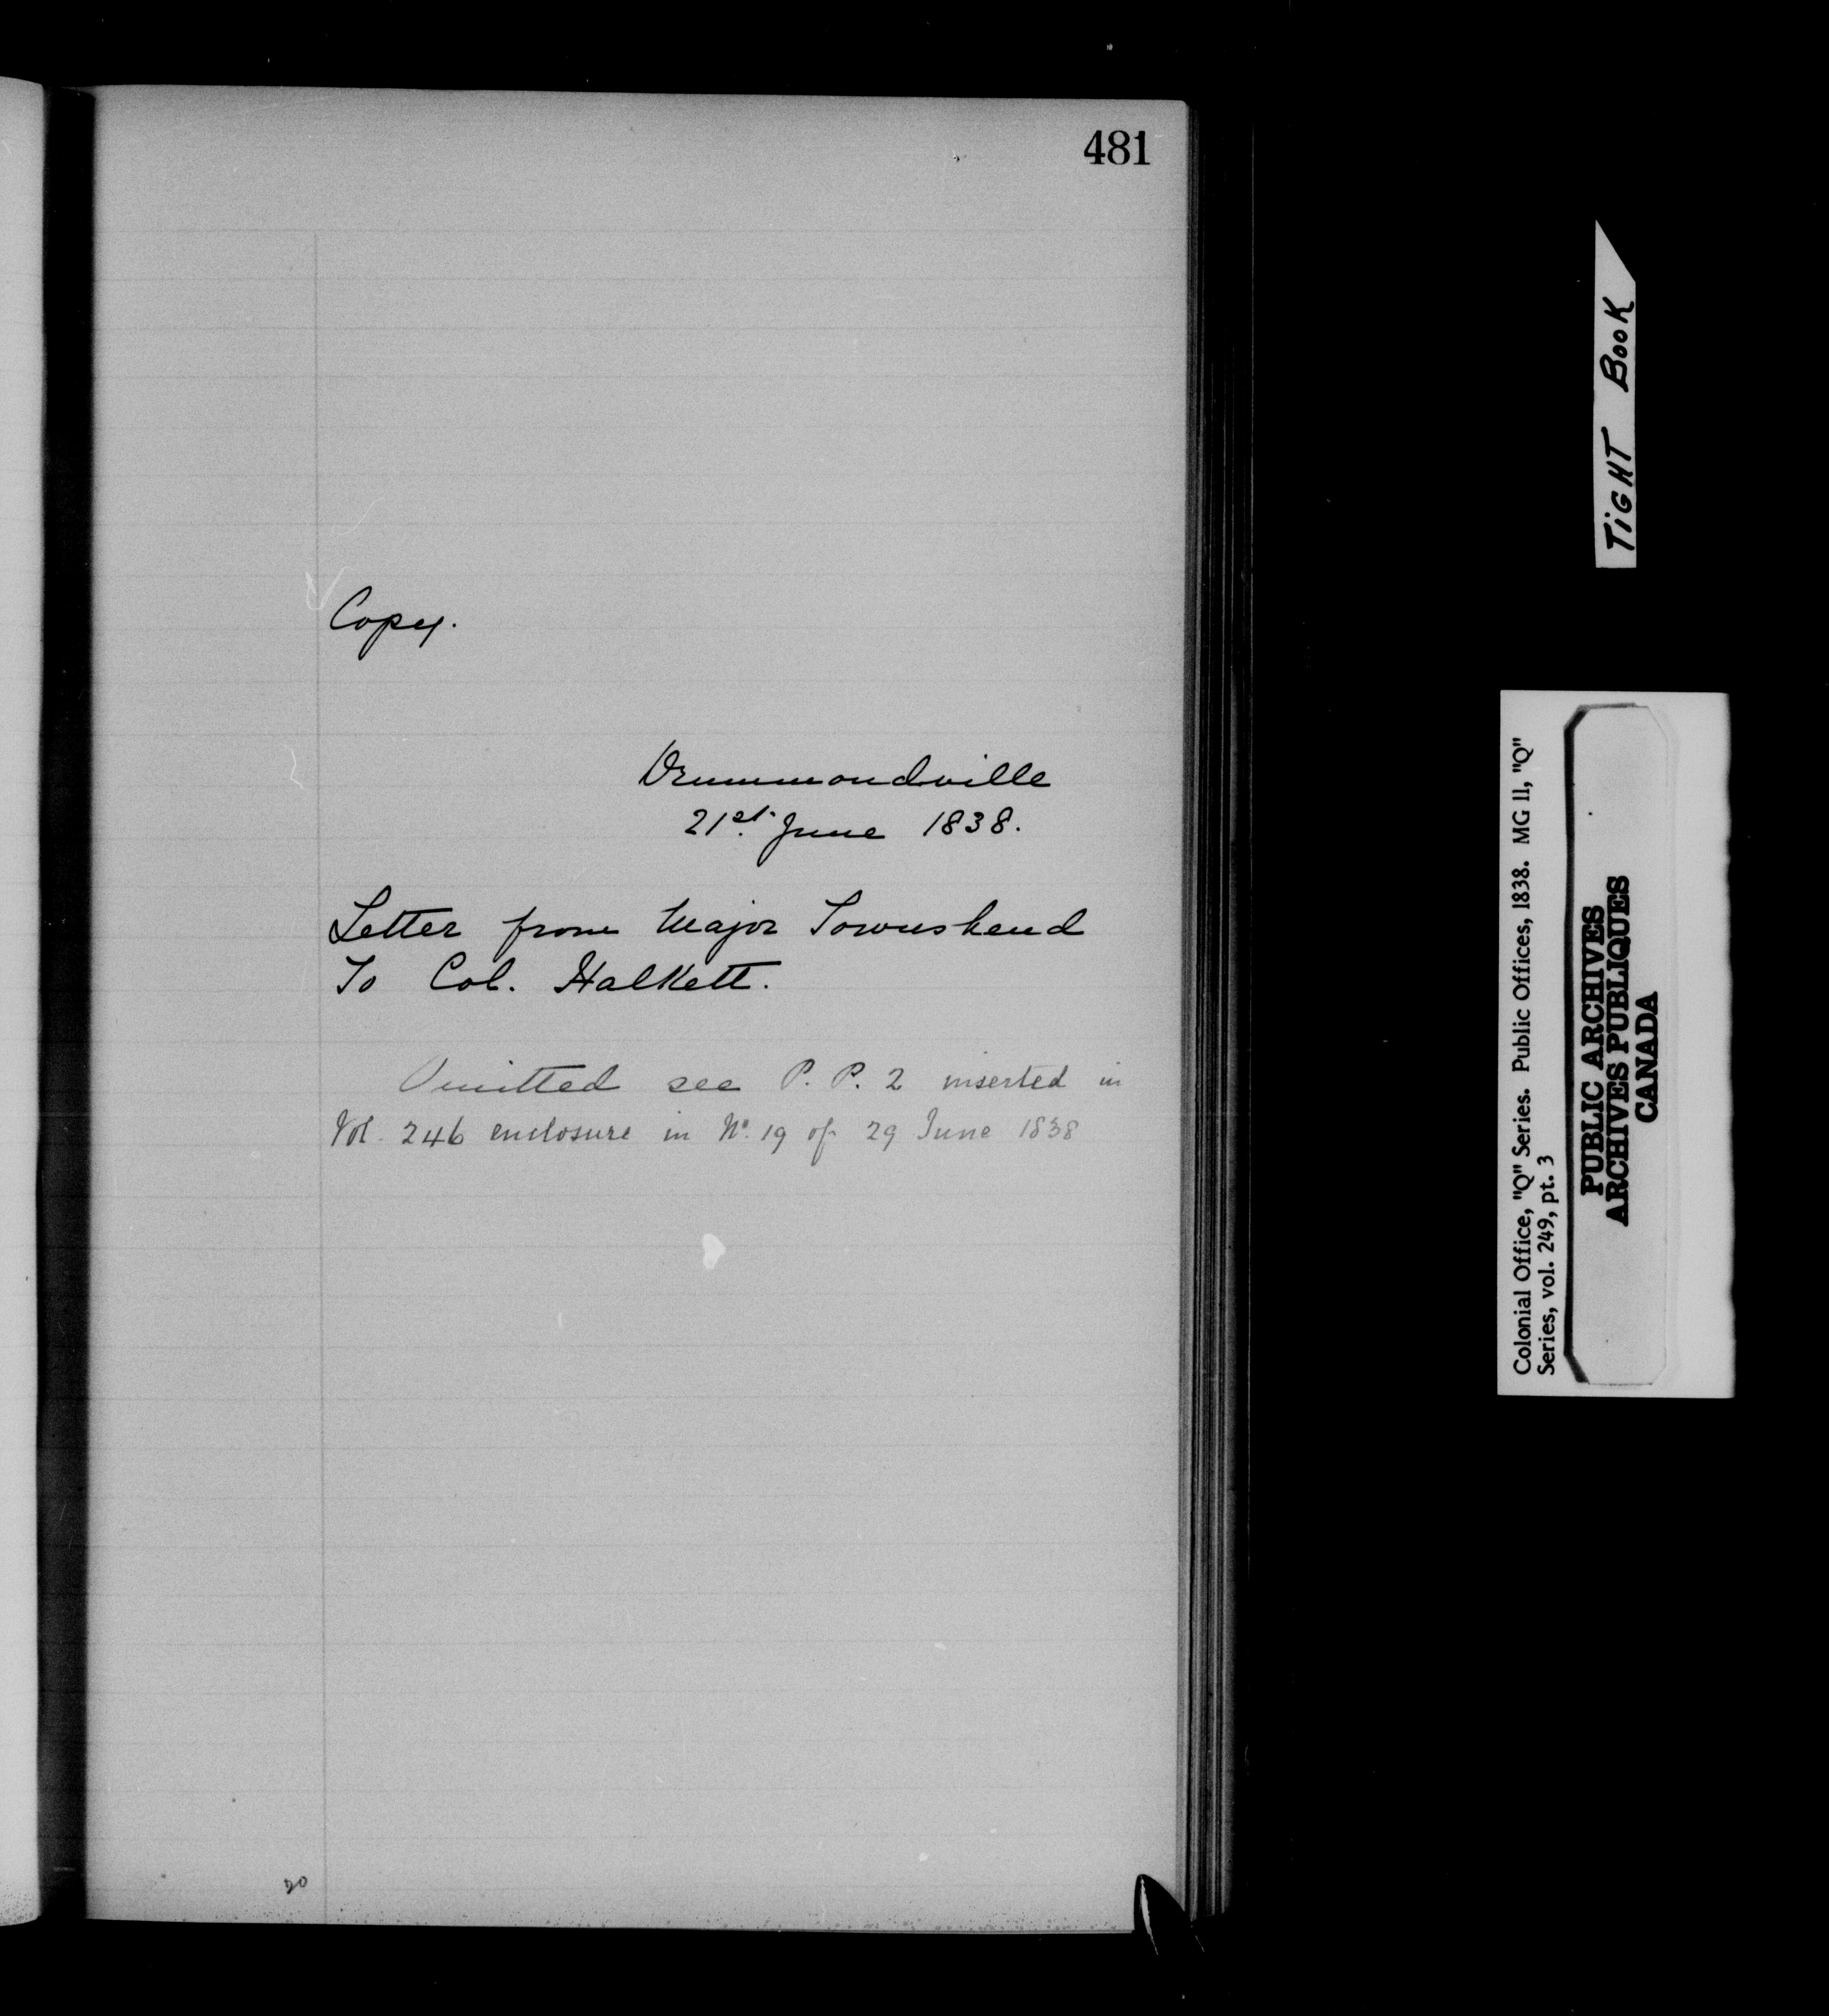 481
Copy.
Drummondville
21st. June 1838.
Letter from Major Townshend
To Col. Halkett.
Omitted see P. P. 2 inserted in
Vol. 246 enclosure in No. 19 of 29 June 1838
20
TiGHT BooK
Colonial Office, "Q" Series. Public Offices, 1838. MG 11, "Q"
Series, vol. 249, pt. 3
PUBLIC ARCHIVES
ARCHIVES PUBLIQUES
CANADA